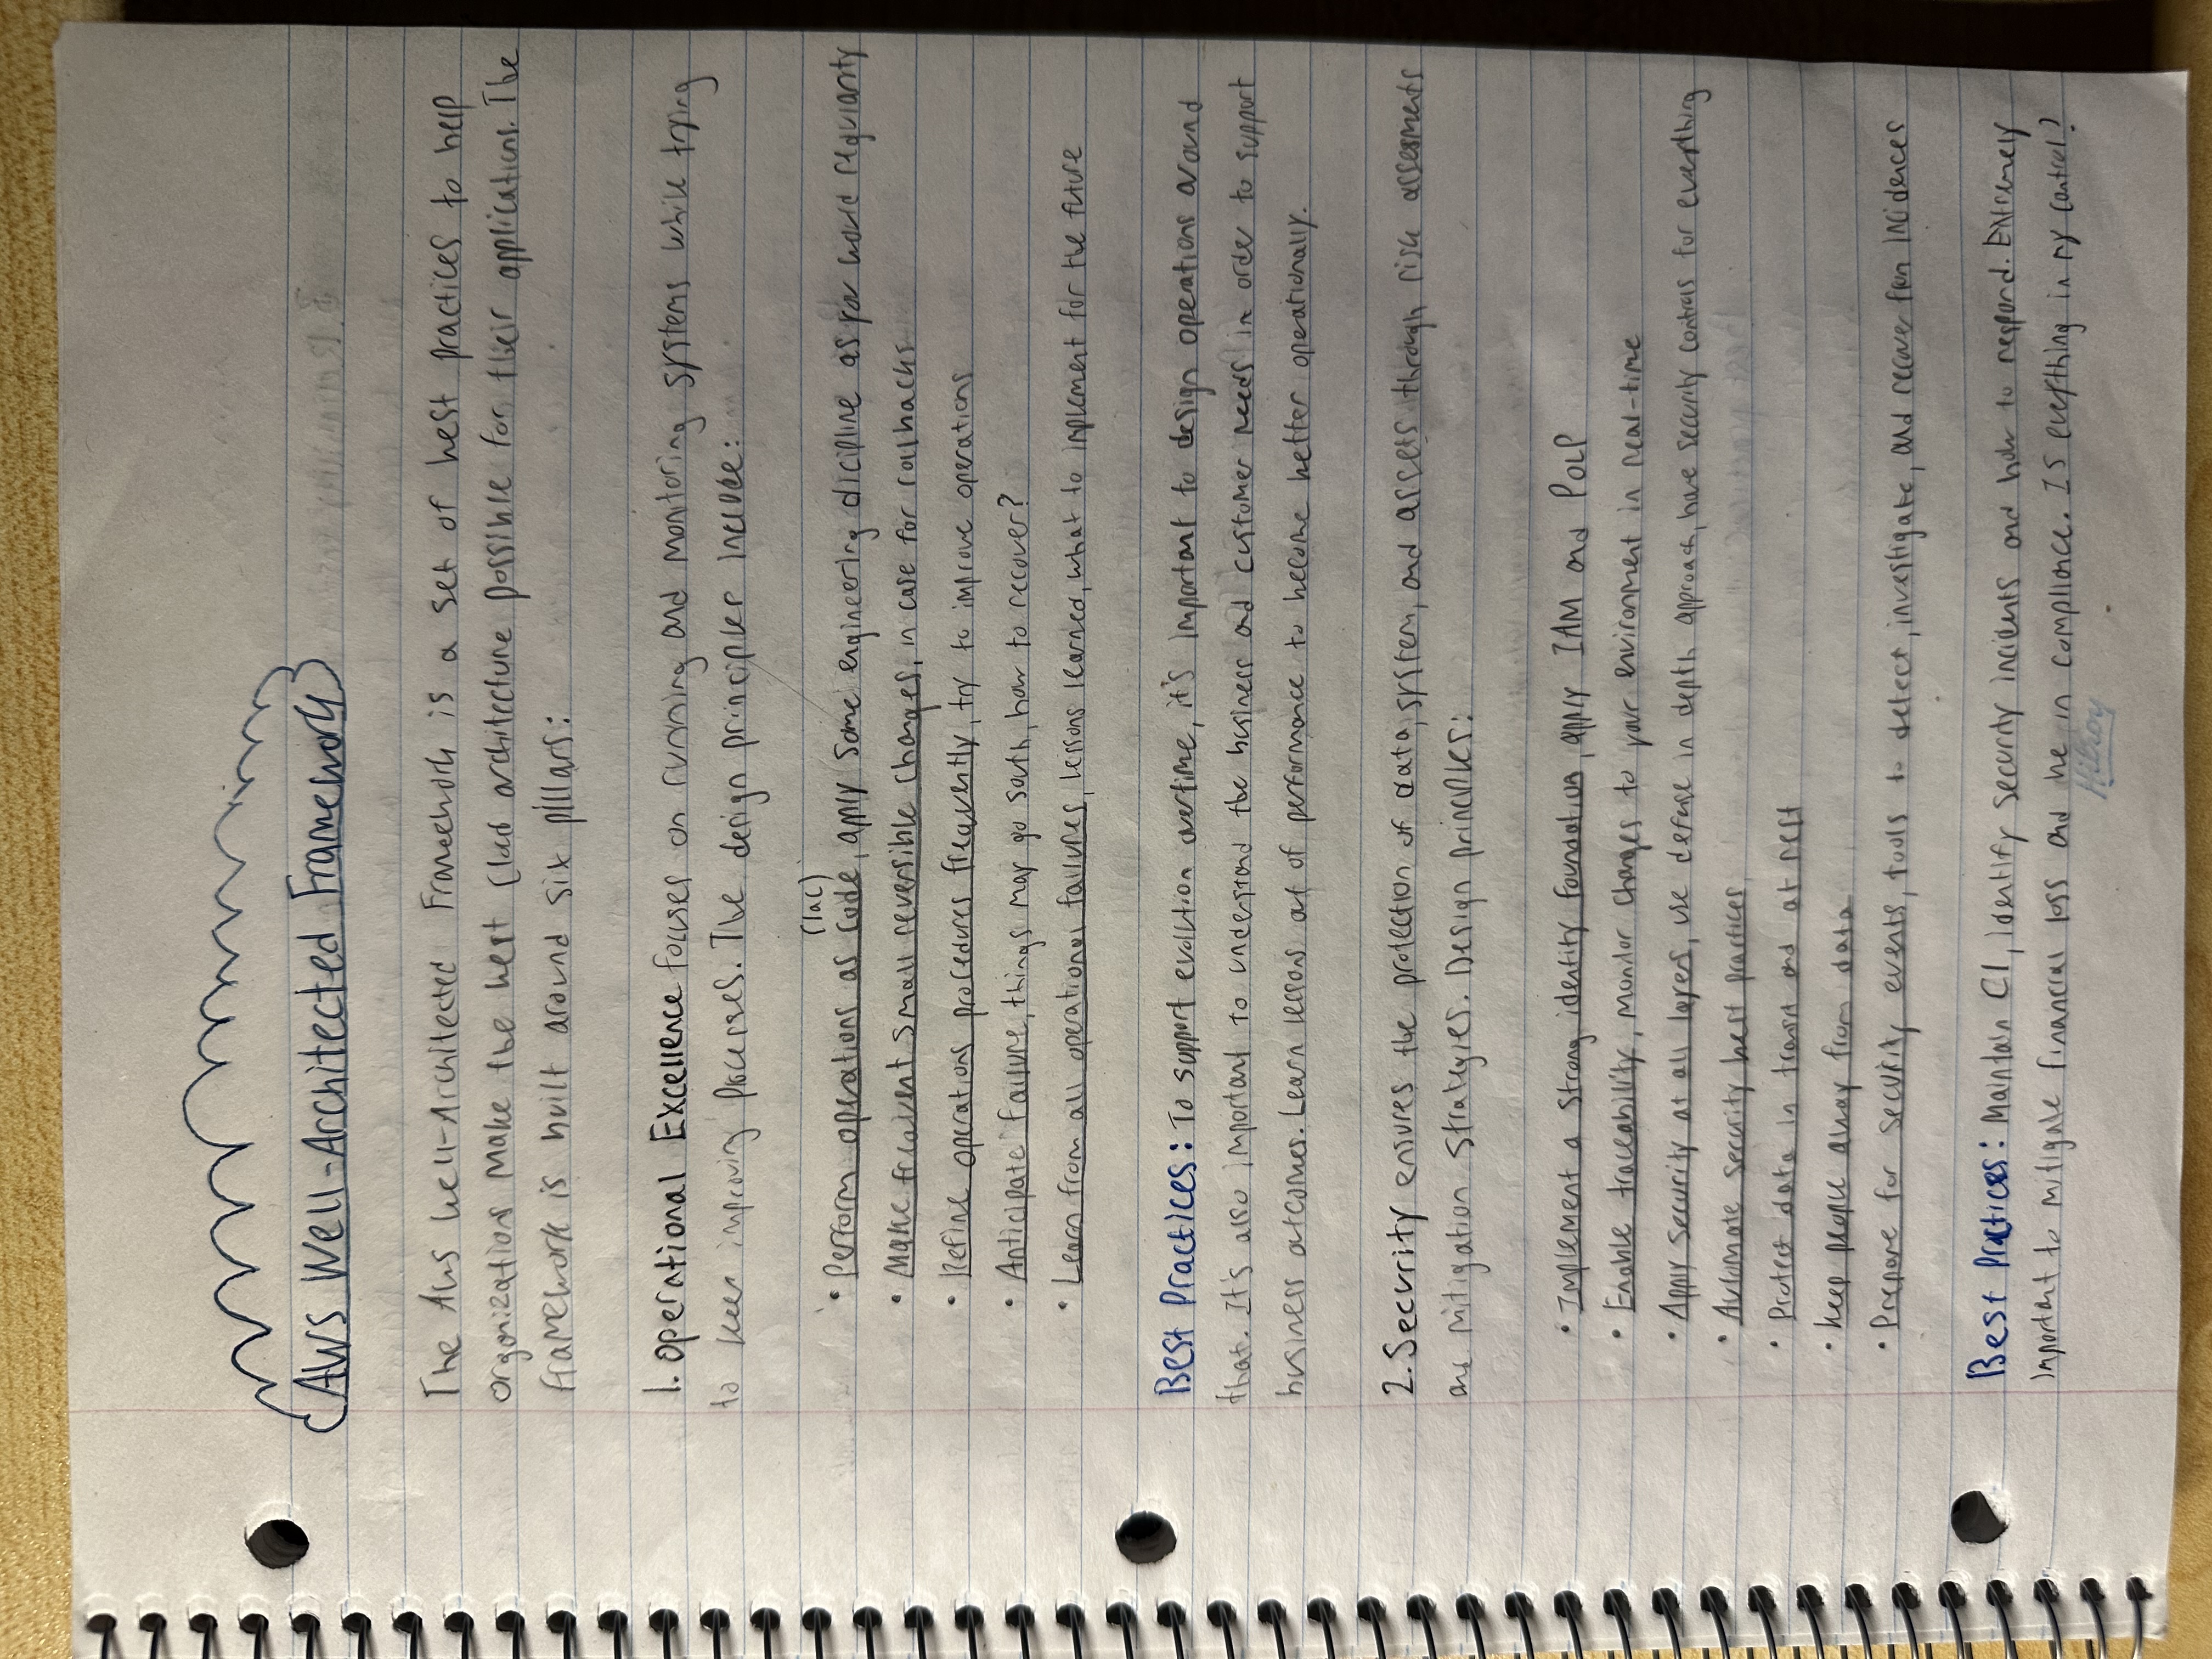 AWS Well-Architected Framework
The AWS Well-Architected Framework is a set of best practices to help
organizations make the best cloud architecture possible for their applications. The
framework is built around six pillars:
1. Operational Excellence focuses on running and monitoring systems while trying
to keep improving processes. The design principles include:
(IaC)
• Perform operations as code, apply same engineering dicipline as you would regularly
• Make frequent small reversible changes, in case for rollbacks
• Refine operations procedures frequently, try to improve operations
• Anticipate failure, things may go south, how to recover?
• Learn from all operational failures, lessons learned, what to implement for the future
Best Practices: To support evolution overtime, it's important to design operations around
that. It's also important to understand the business and customer needs in order to support
business outcomes. Learn lessons out of performance to become better operationally.
2. Security ensures the protection of data, system, and assets through risk assesments
and mitigation strategies. Design principles:
• Implement a strong identity foundation, apply IAM and PoLP
• Enable traceability, monitor changes to your environment in real-time
• Apply security at all layers, use defense in depth approach, have security controls for everything
• Automate security best practices
• Protect data in transit and at rest
• Keep people away from data
• Prepare for security events, tools to detect, investigate, and recover from incidences
Best Practices: Maintain CI, identify security incidents and how to respond. Extremely
important to mitigate financial loss and be in compliance. Is everything in my control?
Hilroy